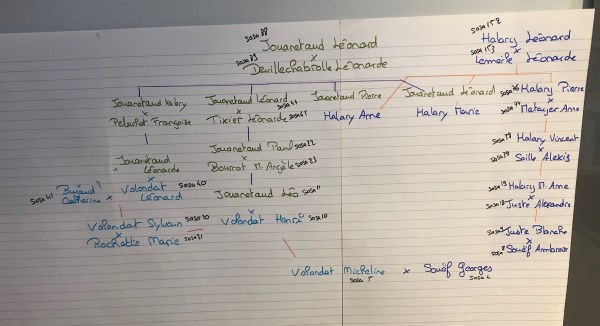 sosa 88 Jouanetaud Léonard
x
sosa 89 Devillechabrolle Léonarde
sosa 152 Halary Léonard
x
sosa 153 Lemasle Léonarde
Jouanetaud Valery
x
Peluchot Françoise
Jouanetaud Léonard sosa 44
x
Tixier Léonarde sosa 45
Jouanetaud Pierre
Halary Anne
Jouanetaud Léonard
Halary Marie
sosa 76 Halary Pierre
x
sosa 77 Metayer Anne
Jouanetaud Léonarde
x
sosa 40 Volondat Léonard
x
sosa 41 Bujaud ? Catherine
Jouanetaud Paul sosa 22
x
Bourrot M. Angèle sosa 23
Halary Vincent
x
Saille Alexis
Jouanetaud Léo sosa 11
x
Volondat Henri sosa 10
Volondat Sylvain sosa 20
x
Rochatte Marie sosa 21
sosa 19 Halary M. Anne
x
sosa 18 Juste Alexandre
sosa 9 Juste Blanche
x
sosa 8 Souëf Ambroise
Volondat Micheline x Souëf Georges
sosa 5
sosa 4